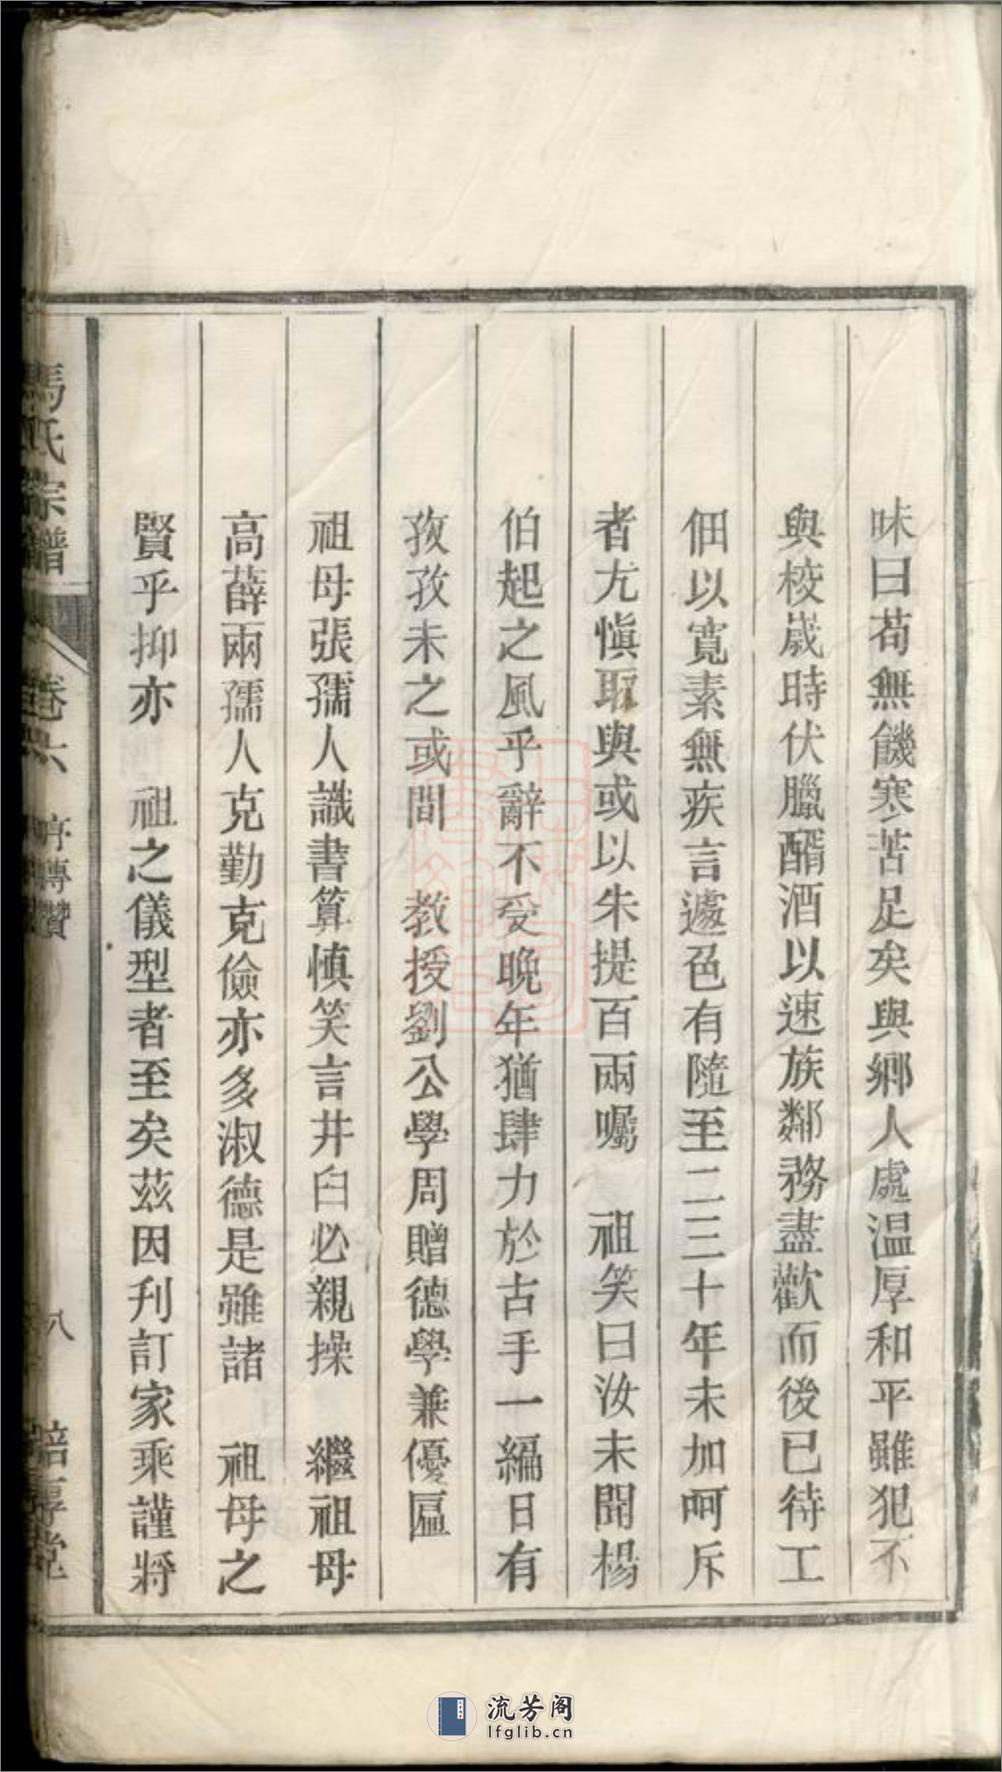 味曰苟無饑寒苦足矣與鄉人處温厚和平雖犯不
與校歲時伏臘醑酒以速族鄰務盡歡而後已待工
佃以寬素無疾言遽色有隨至二三十年未加呵斥
者尤慎取與或以朱提百兩囑 祖笑曰汝未聞楊
伯起之風乎辭不受晚年猶肆力於古手一編日有
孜孜未之或間 教授劉公學周贈德學兼優匾
祖母張孺人識書算慎笑言井臼必親操 繼祖母
高薛兩孺人克勤克儉亦多淑德是雖諸 祖母之
賢乎抑亦 祖之儀型者至矣茲因刊訂家乘謹將
馬氏宗譜 卷六 序傳贊 八
流芳阁
lfglib.cn